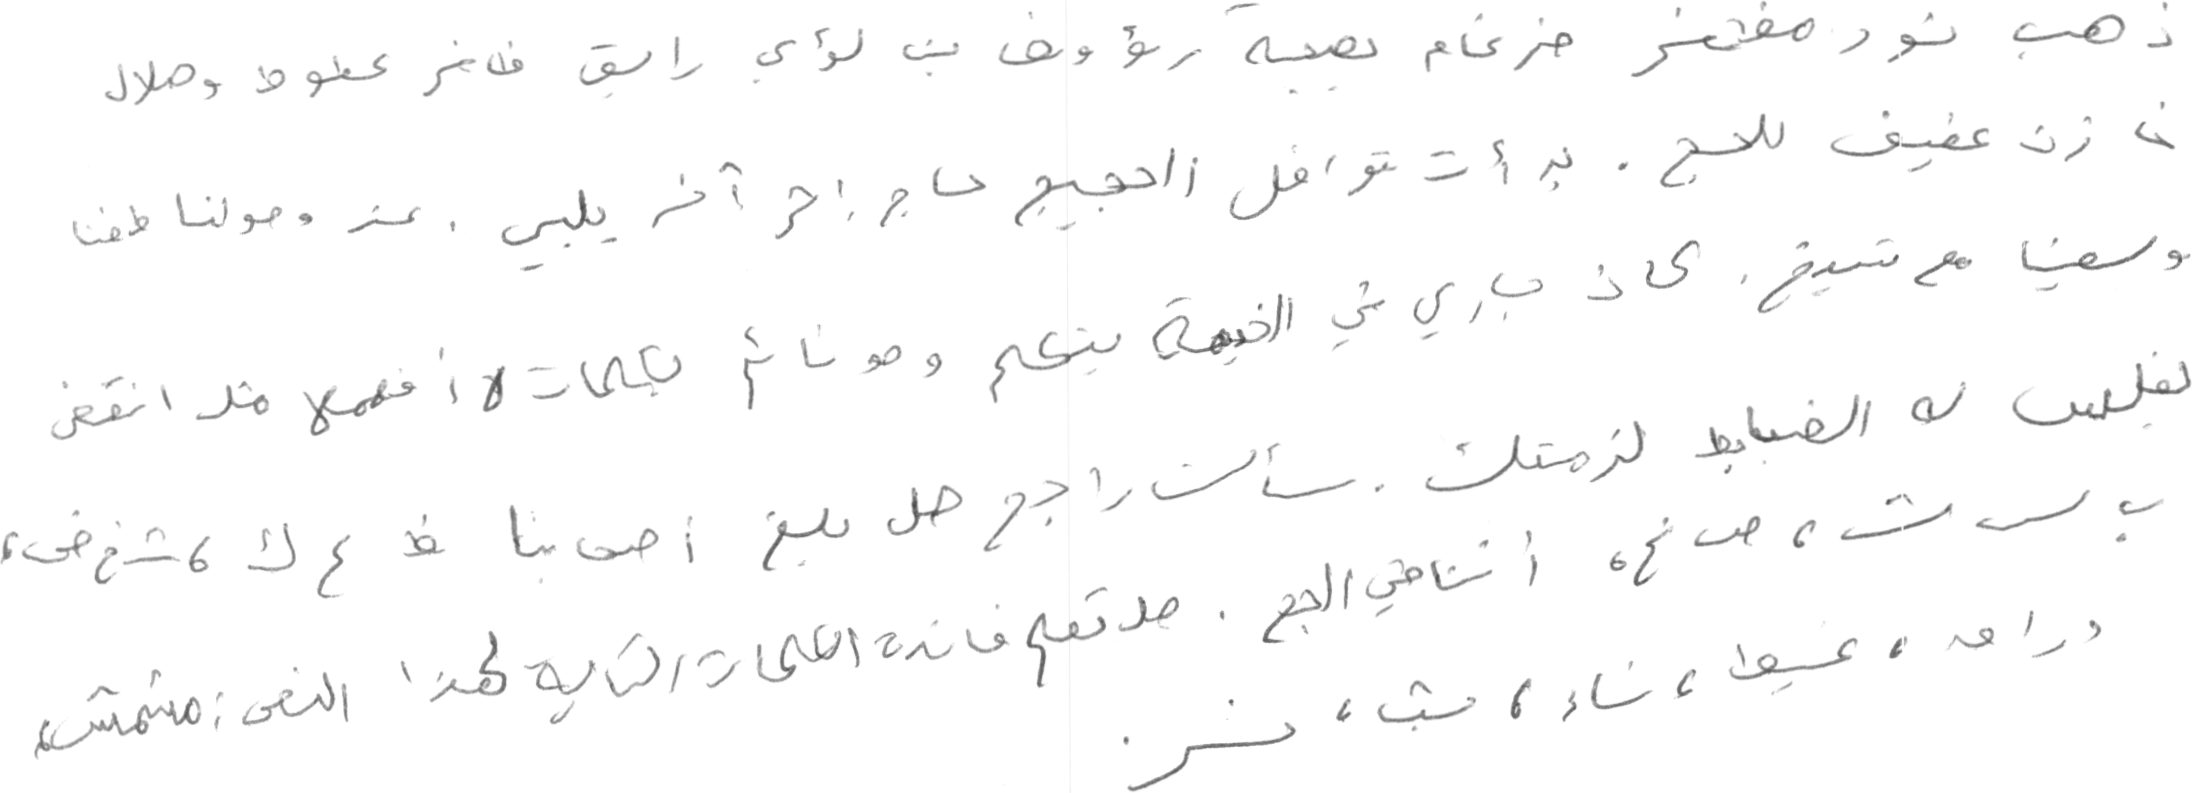 ذهب نود مظفر ضرغام بصحبة رؤوف بن لؤي رايق ظافر عطوط وهلال
خازن عفيف للحج . بدأت قوافل الحجيج حاج إثر آخر يلبي . عند وصولنا طفنا
وسعينا مع شيخ . كان جاري في الخيمة يتكلم وهو نائم بكلمات لا أفهمها مثل انقض
لفلس له الضابط لزمتك . سألت راجح هل بلغ أصحابنا ظ ع ك ، ش خ ض ،
ب س ث ، ص خ ، أثناء الحج . هل تعلم فائدة الكلمات التالية لهذا النص : مشمش ،
دراهه ، غيظ ، شاء ، مشب ، نسر .